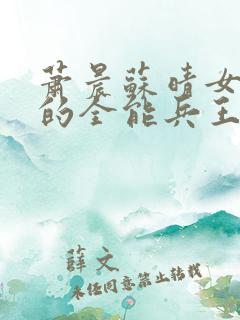 萧晨蘇晴女
的全能兵王
薛文
未经同意禁止转载